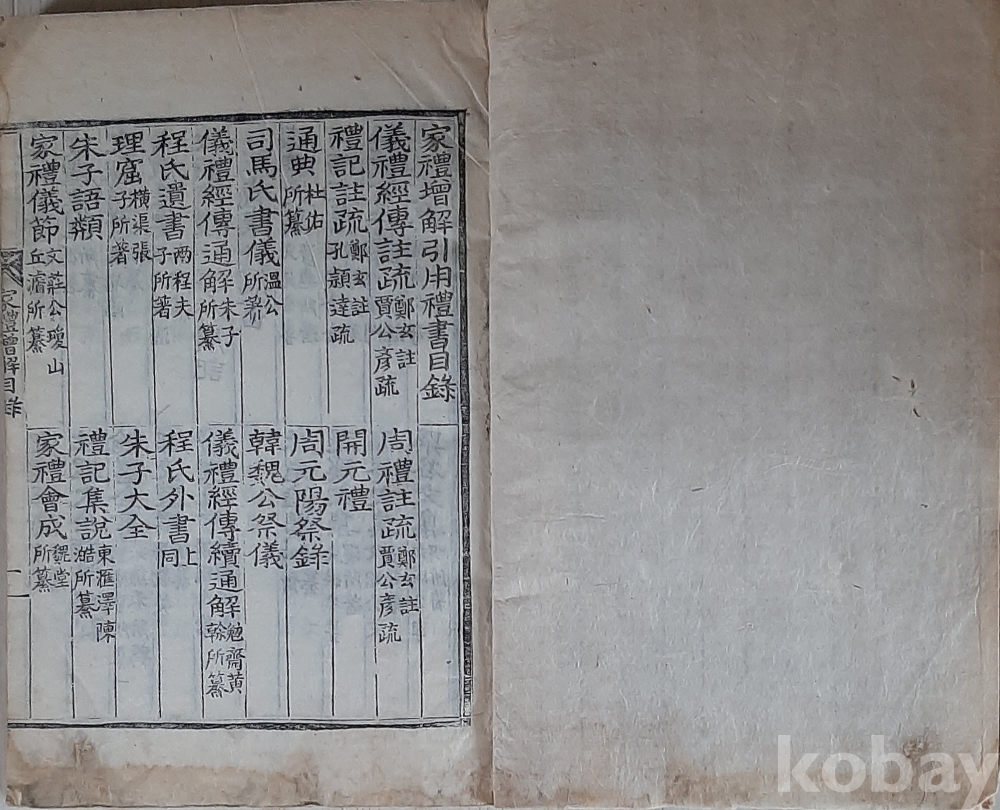 家禮增解引用禮書目錄
儀禮經傳註疏 鄭玄註 賈公彦疏
周禮註疏 鄭玄註 賈公彦疏
禮記註疏 鄭玄註 孔穎達疏
開元禮
通典 杜佑所纂
周元陽祭錄
司馬氏書儀 溫公所著
韓魏公祭儀
儀禮經傳通解 朱子所纂
儀禮經傳續通解 勉齋黃榦所纂
程氏遺書 兩程夫子所著
程氏外書 上同
理窟 橫渠張子所著
朱子大全
朱子語類
禮記集說 東滙澤陳澔所纂
家禮儀節 文莊公瓊山丘濬所纂
家禮會成 魏堂所纂
家禮增解目錄
一
kobay